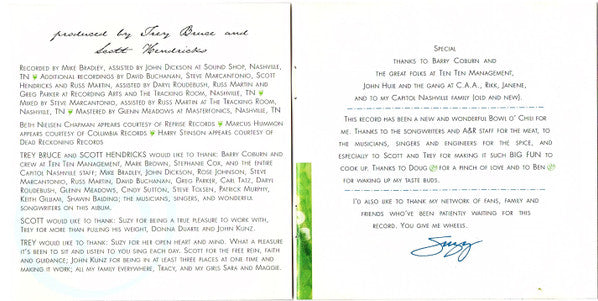 produced by Trey Bruce and
Scott Hendricks
Recorded by Mike Bradley, assisted by John Dickson at Sound Shop, Nashville,
TN Additional recordings by David Buchanan, Steve Marcantonio, Scott
Hendricks and Russ Martin, assisted by Daryl Roudebush, Russ Martin and
Greg Parker at Recording Arts and The Tracking Room, Nashville, TN
Mixed by Steve Marcantonio, assisted by Russ Martin at The Tracking Room,
Nashville, TN Mastered by Glenn Meadows at Masterfonics, Nashville, TN
Beth Neilsen Chapman appears courtesy of Reprise Records Marcus Hummon
appears courtesy of Columbia Records Harry Stinson appears courtesy of
Dead Reckoning Records
TREY BRUCE and SCOTT HENDRICKS would like to thank: Barry Coburn and
crew at Ten Ten Management, Mark Brown, Stephanie Cox, and the entire
Capitol Nashville staff; Mike Bradley, John Dickson, Rose Johnson, Steve
Marcantonio, Russ Martin, David Buchanan, Greg Parker, Carl Tatz, Daryl
Roudebush, Glenn Meadows, Cindy Sutton, Steve Tolsen, Patrick Murphy,
Keith Gilliam, Shawn Balding; the musicians, singers, and wonderful
songwriters on this album.
SCOTT would like to thank: Suzy for being a true pleasure to work with,
Trey for more than pulling his weight, Donna Duarte and John Kunz.
TREY would like to thank: Suzy for her open heart and mind. What a pleasure
it's been to sit and listen to you sing each day. Scott for the free rein, faith
and guidance; John Kunz for being in at least three places at one time and
making it work; all my family everywhere, Tracy, and my girls Sara and Maggie.
Special
thanks to Barry Coburn and
the great folks at Ten Ten Management,
John Huie and the gang at C.A.A., Rikk, Janene,
and to my Capitol Nashville family (old and new).
This record has been a new and wonderful Bowl o' Chili for
me. Thanks to the songwriters and A&R staff for the meat, to
the musicians, singers and engineers for the spice, and
especially to Scott and Trey for making it such BIG FUN to
cook up. Thanks to Doug for a pinch of love and to Ben
for waking up my taste buds.
I'd also like to thank my network of fans, family and
friends who've been patiently waiting for this
record. You give me wheels.
Suzy